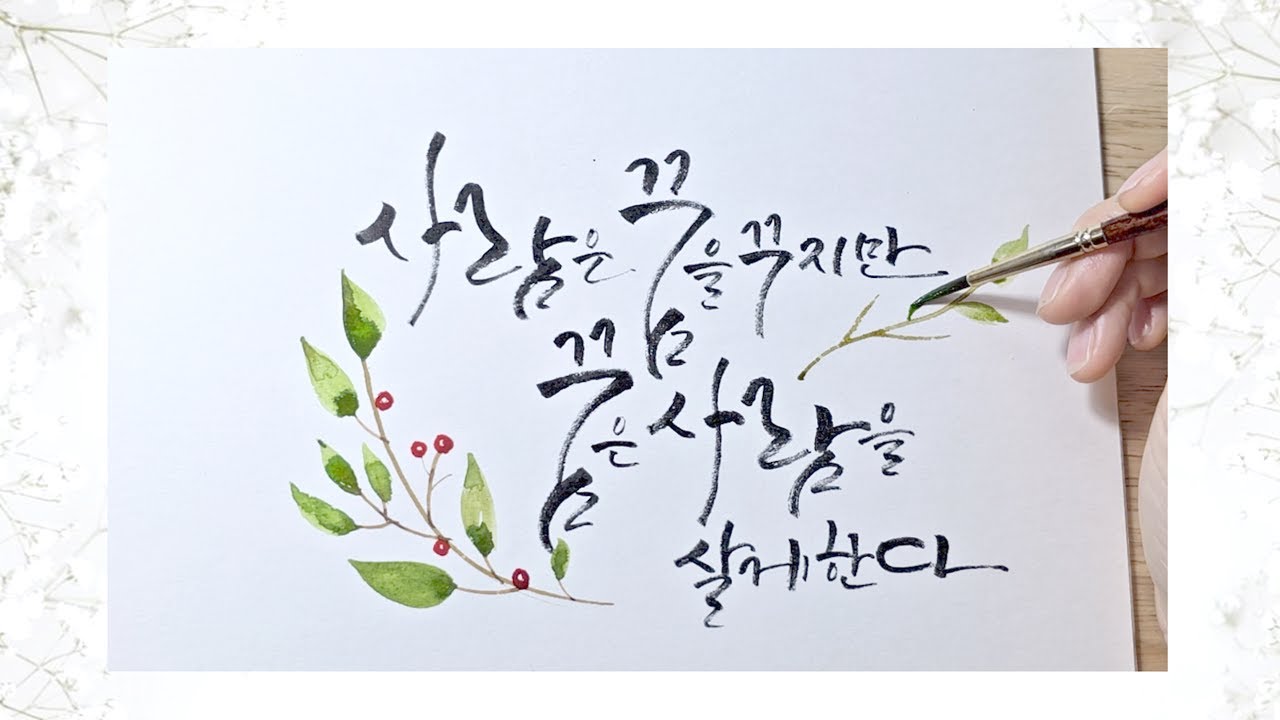 사람은 꿈을 꾸지만
꿈은 사람을
살게한다